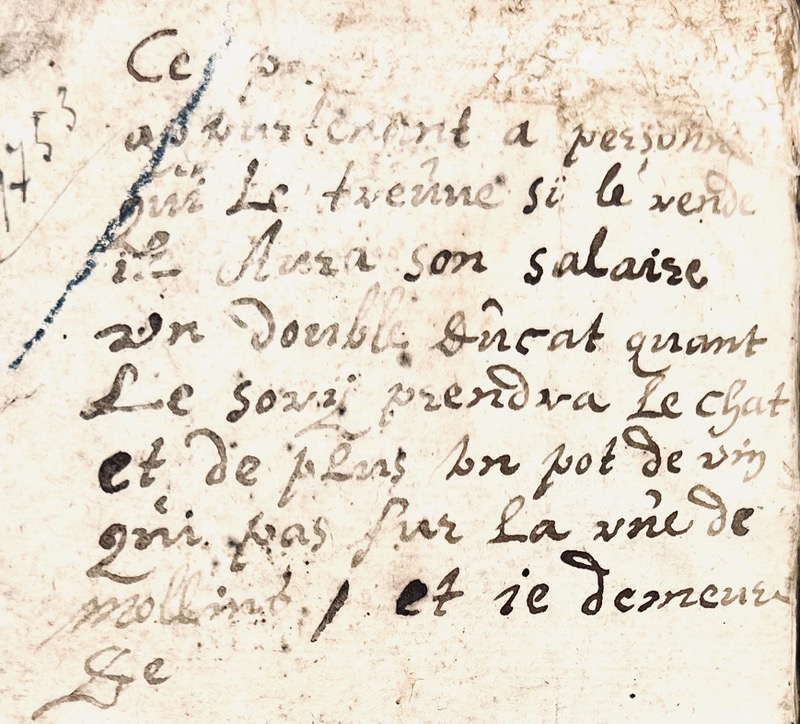 Ce
appurtenant a personne
qui Le treûue si lé vende
il Aura son salaire
vn double dûcat quant
Le soriÿ prendra Le chat
et de plus vn pot de vin
qui pas sur La rûe de
mollint, et ie demeure
De
1753